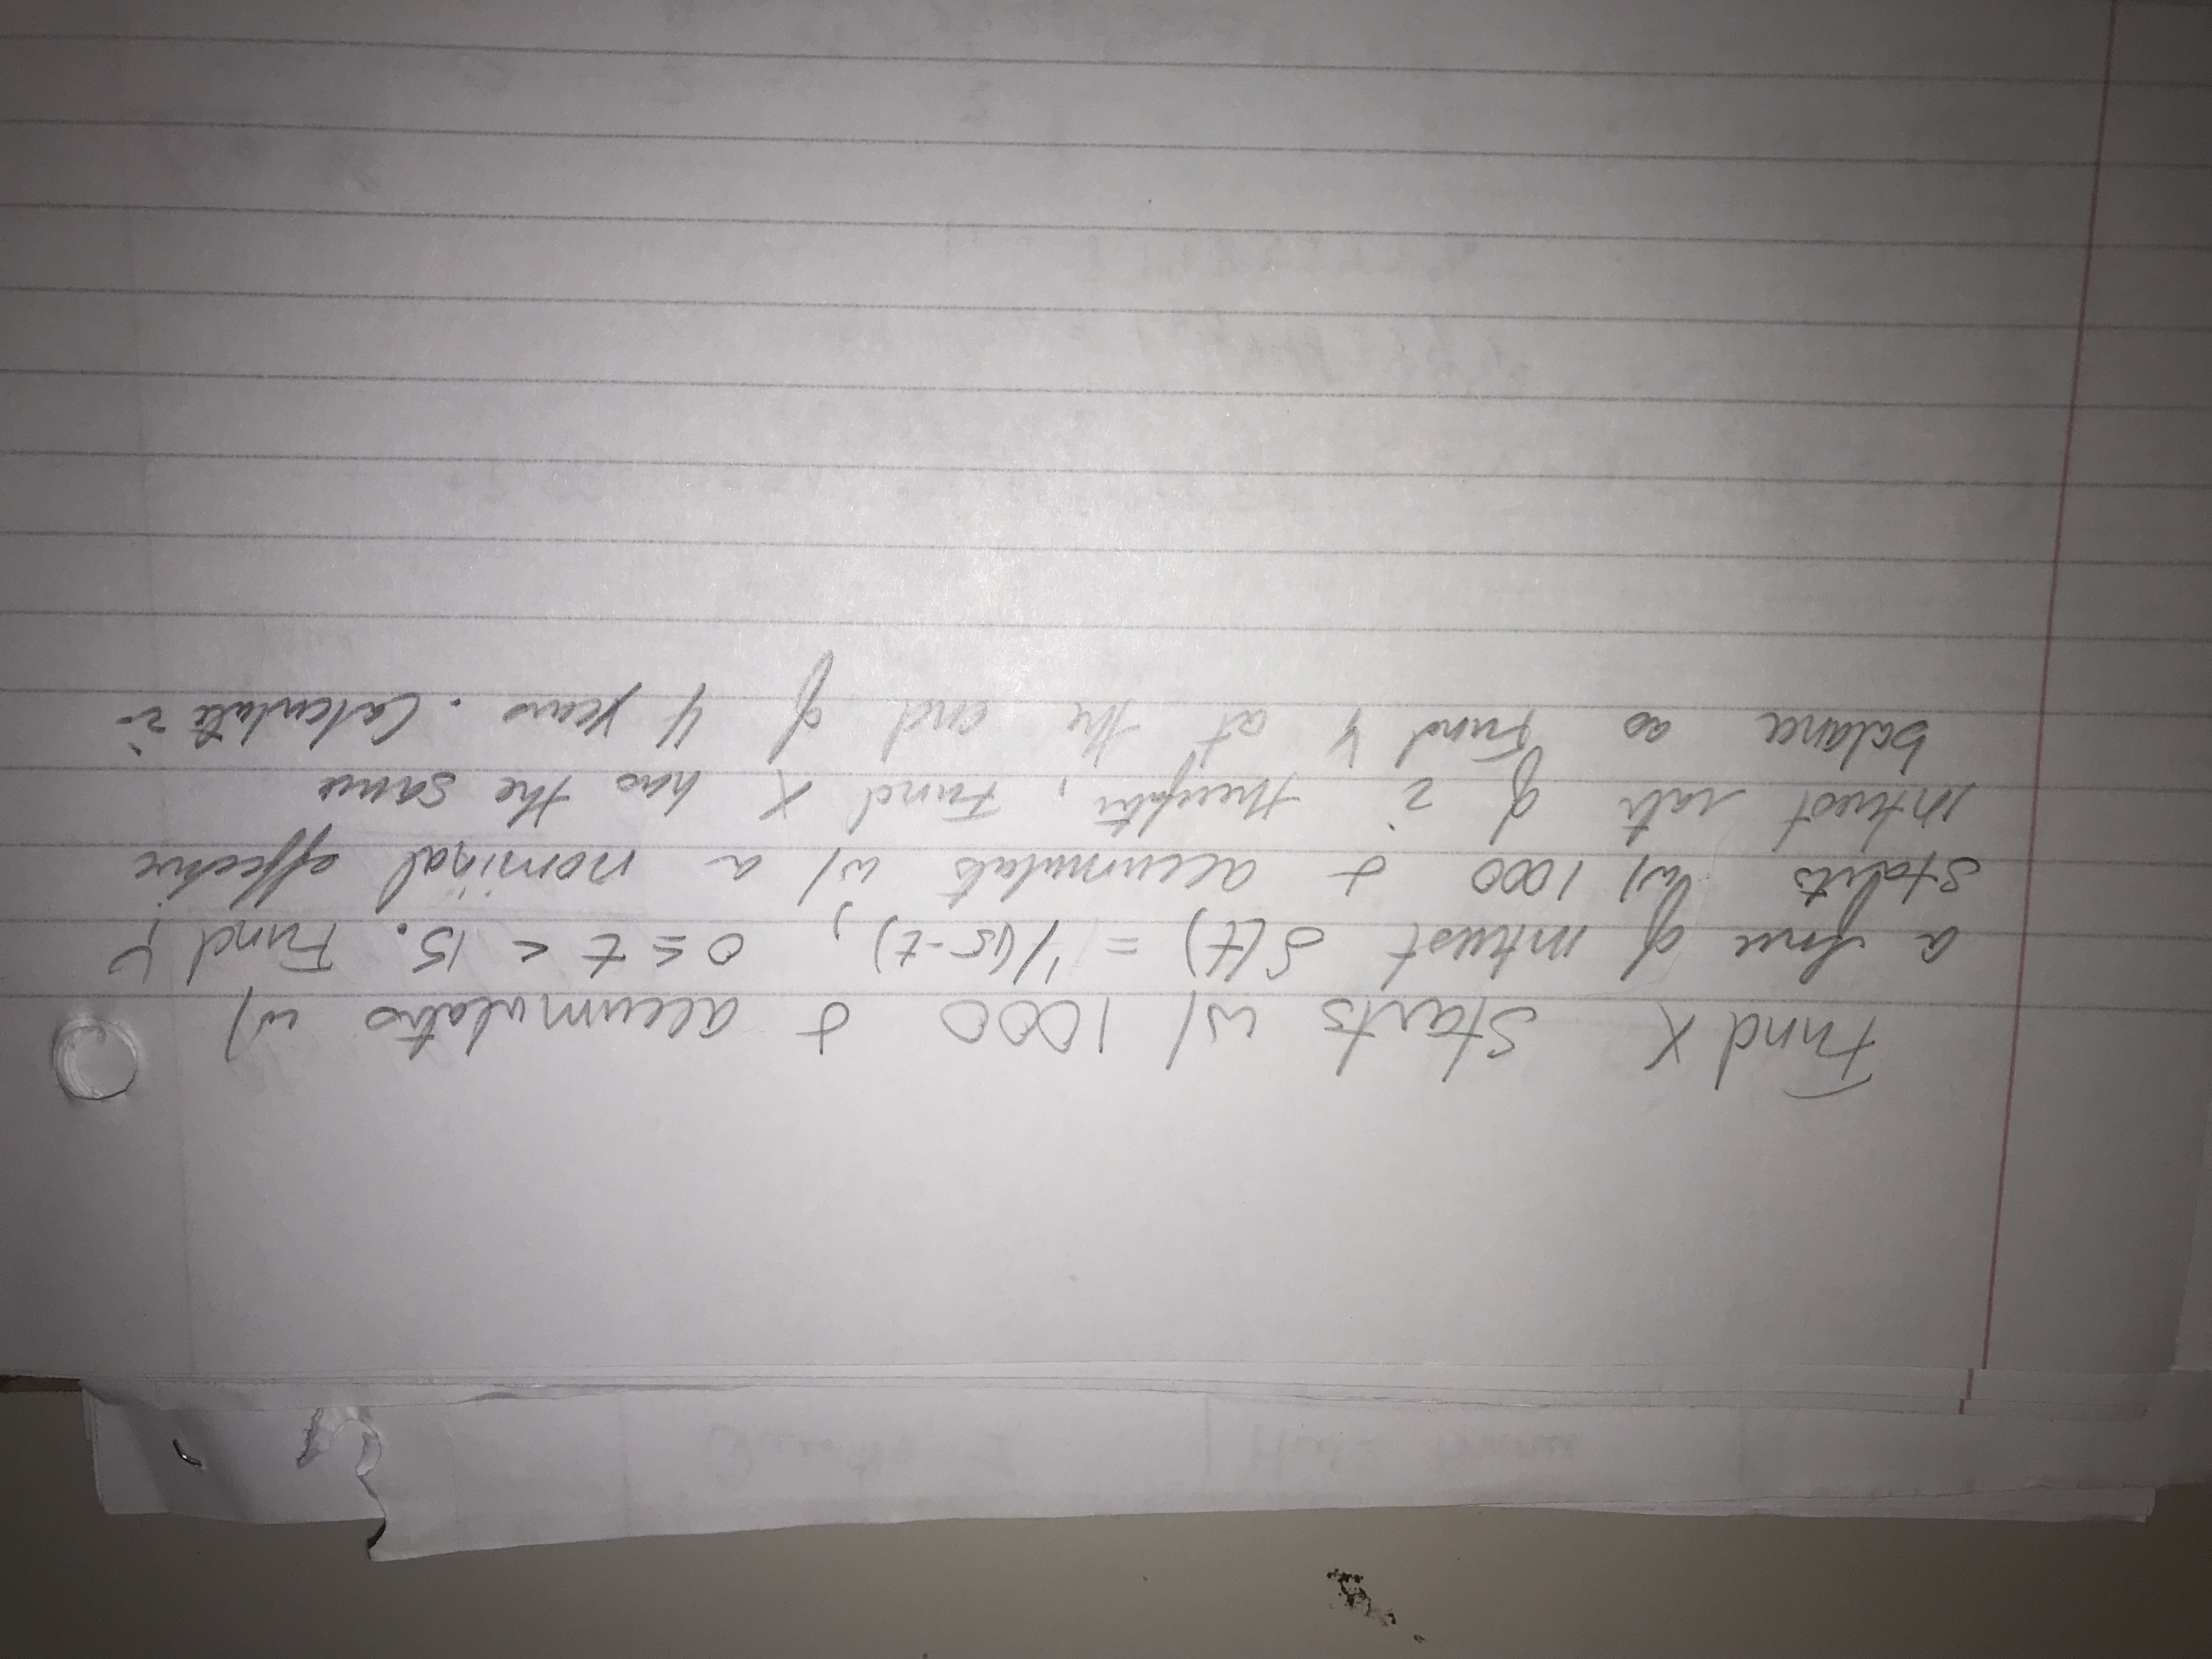 Fund X starts w/ 1000 & accumulates w/
a force of interest δ(t) = 1/(15-t), 0 ≤ t < 15. Fund Y
starts w/ 1000 & accumulates w/ a nominal effective
interest rate of i, Fund X has the same
balance as Fund Y at the end of 4 years. Calculate i.